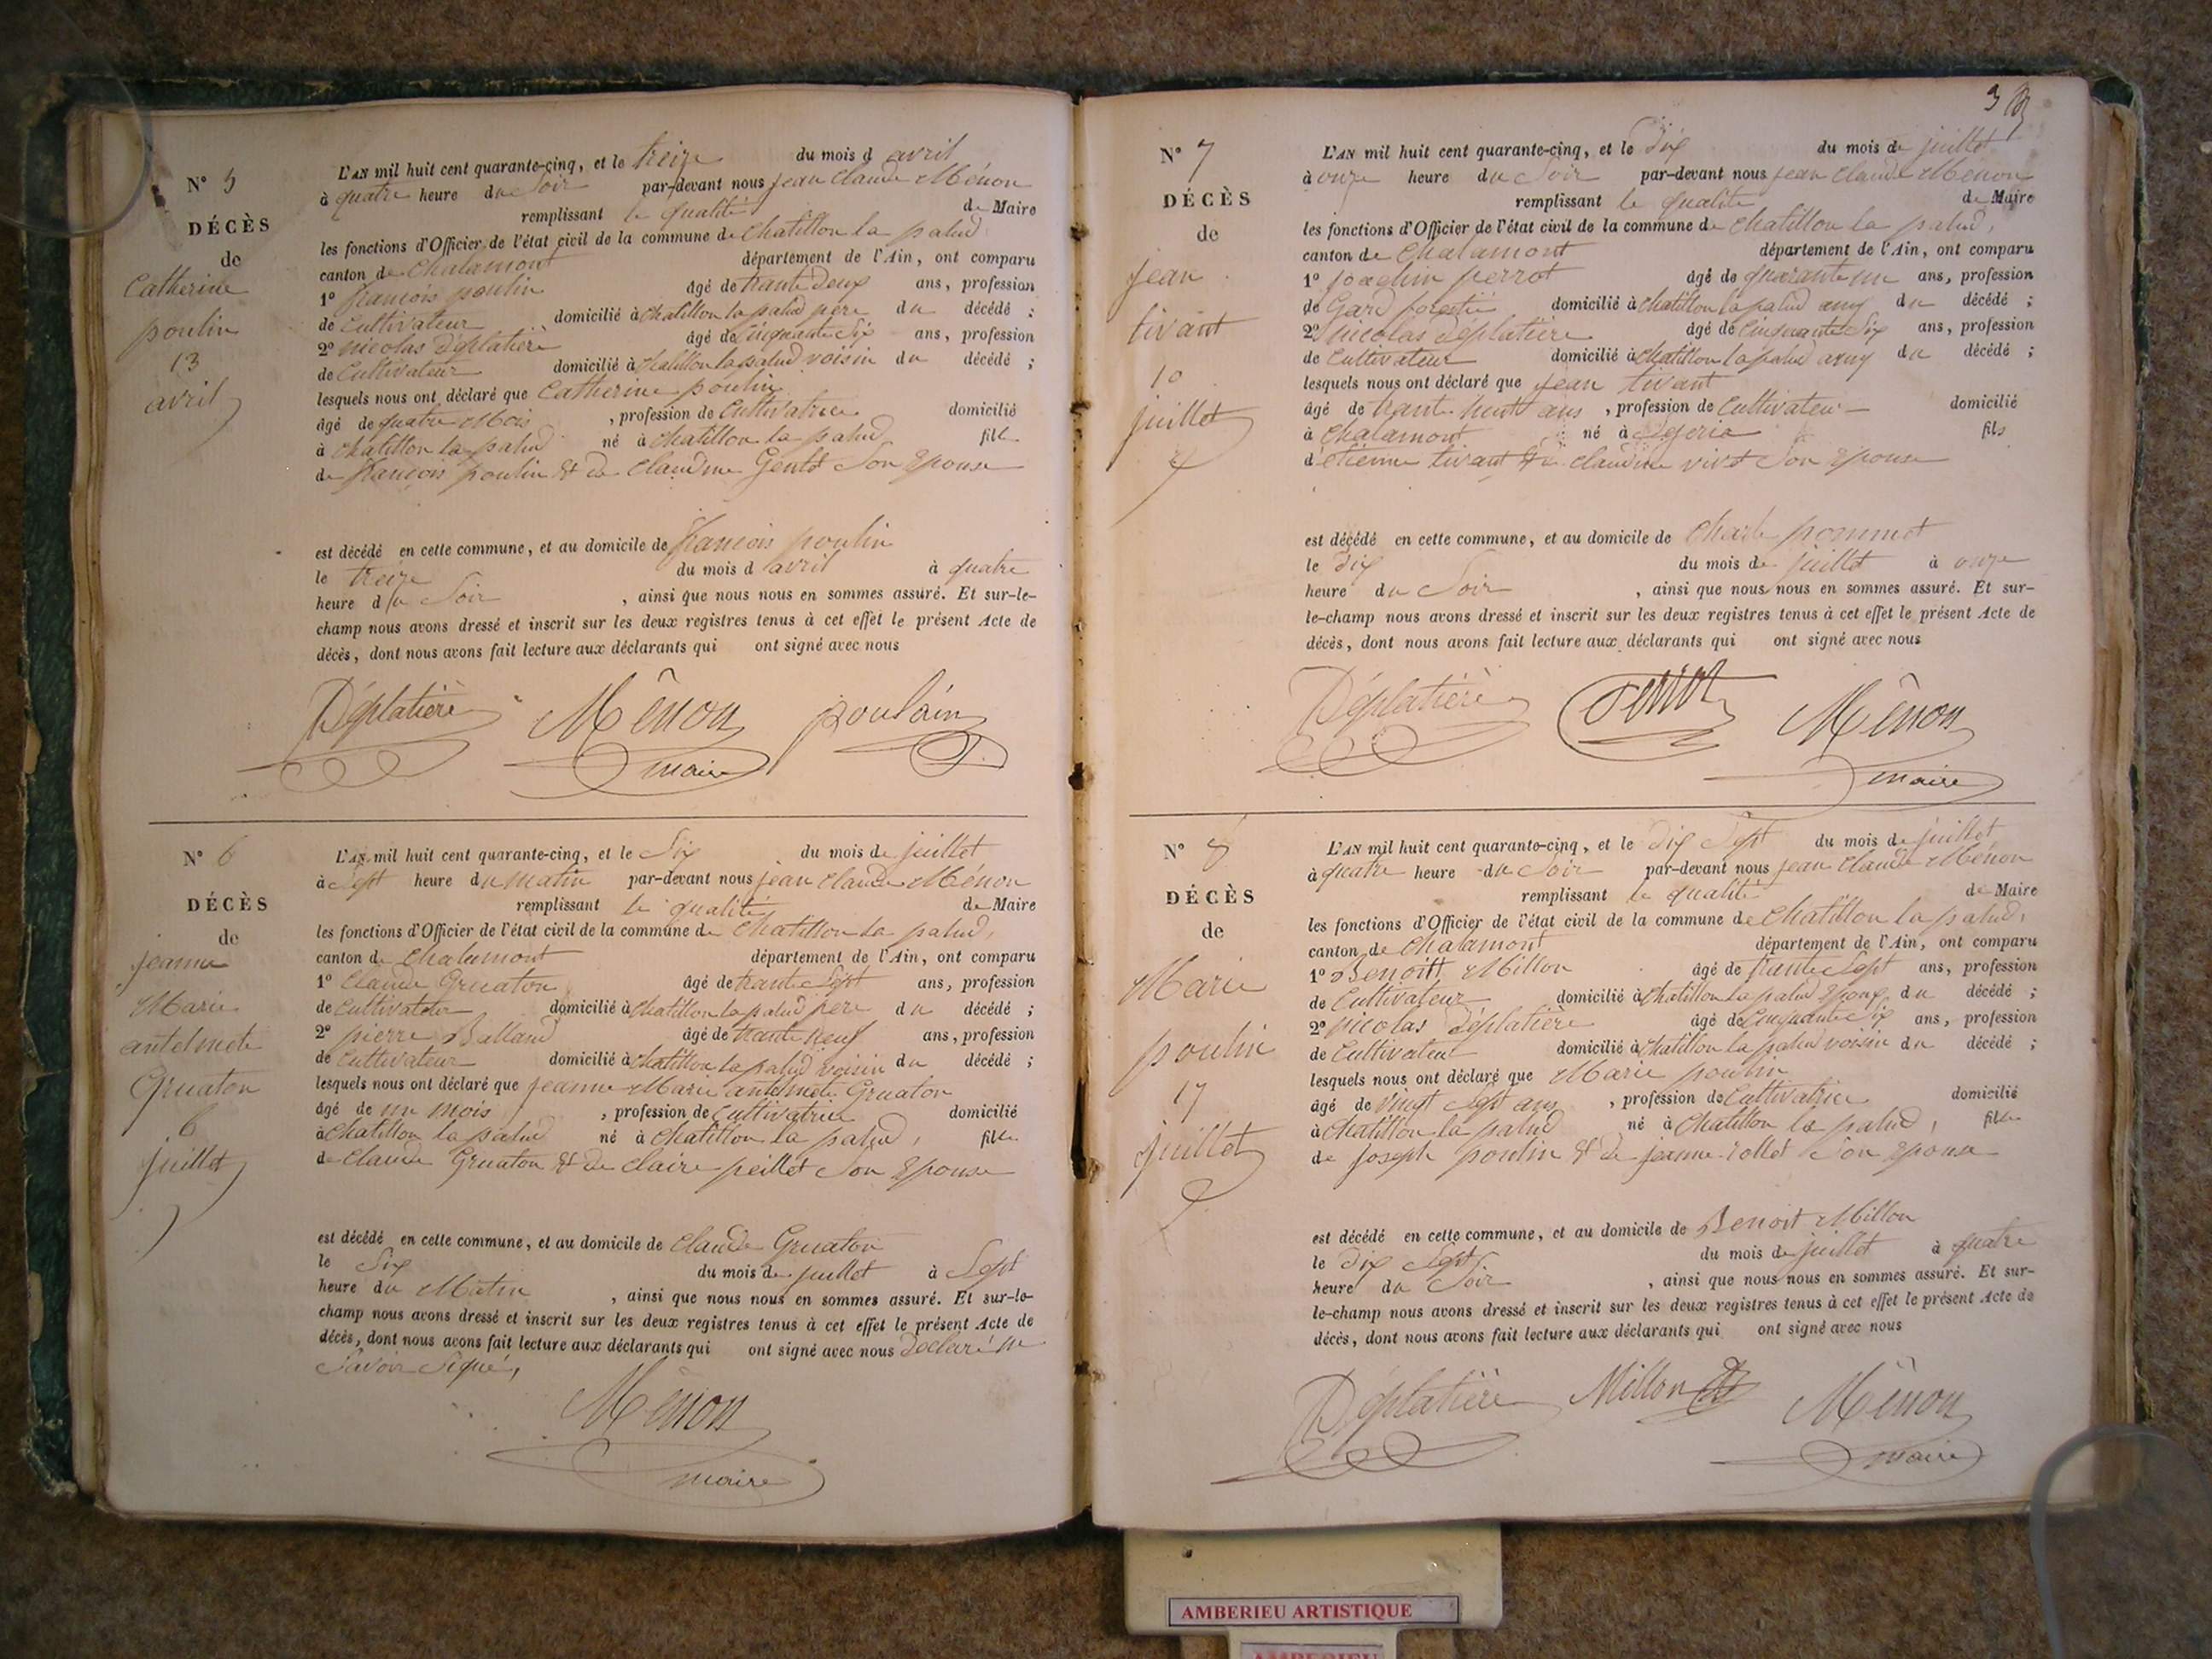 N° 5
DÉCÈS
de
Catherine
poulin
13
avril
L'AN mil huit cent quarante-cinq, et le treize du mois d avril
à quatre heure du Soir par-devant nous jean Claude Ménon
remplissant le qualité de Maire
les fonctions d'Officier de l'état civil de la commune de Chatillon la palud
canton de Chalamont département de l'Ain, ont comparu
1° françois poulin âgé de trante Deux ans, profession
de Cultivateur domicilié à Chatillon la palud père du décédé ;
2° nicolas Déplatière âgé de Cinquante Six ans, profession
de Cultivateur domicilié à Chatillon la palud voisin du décédé ;
lesquels nous ont déclaré que Catherine poulin
âgé de quatre Mois , profession de Cultivatrice domicilié
à Chatillon la palud né à Chatillon la palud fille
de françois poulin & de Claudine Gentet Son Epouse
est décédé en cette commune, et au domicile de françois poulin
le treize du mois d avril à quatre
heure du Soir , ainsi que nous nous en sommes assuré. Et sur-le-
champ nous avons dressé et inscrit sur les deux registres tenus à cet effet le présent Acte de
décès, dont nous avons fait lecture aux déclarants qui ont signé avec nous
Déplatière Ménon poulain
maire
N° 6
DÉCÈS
de
jeanne
Marie
antelmete
Gruaton
6
juillet
L'AN mil huit cent quarante-cinq, et le Six du mois de juillet
à Sept heure du matin par-devant nous jean Claude Ménon
remplissant le qualité de Maire
les fonctions d'Officier de l'état civil de la commune de Chatillon la palud,
canton de Chalamont département de l'Ain, ont comparu
1° Claude Gruaton âgé de trante Sept ans, profession
de Cultivateur domicilié à Chatillon la palud père du décédé ;
2° pierre Balland âgé de trante neuf ans, profession
de Cultivateur domicilié à Chatillon la palud voisin du décédé ;
lesquels nous ont déclaré que jeanne Marie antelmete Gruaton
âgé de un mois , profession de Cultivatrice domicilié
à Chatillon la palud né à Chatillon la palud, fille
de Claude Gruaton & de Claire peillet Son Epouse
est décédé en cette commune, et au domicile de Claude Gruaton
le Six du mois de juillet à Sept
heure du Matin , ainsi que nous nous en sommes assuré. Et sur-le-
champ nous avons dressé et inscrit sur les deux registres tenus à cet effet le présent Acte de
décès, dont nous avons fait lecture aux déclarants qui ont signé avec nous Declaré ne
Savoir Signé,
Ménon
maire
3
N° 7
DÉCÈS
de
jean
tivant
10
juillet
L'AN mil huit cent quarante-cinq, et le Dix du mois de juillet
à onze heure du Soir par-devant nous jean Claude Ménon
remplissant le qualité de Maire
les fonctions d'Officier de l'état civil de la commune de Chatillon la palud,
canton de Chalamont département de l'Ain, ont comparu
1° joachin perrot âgé de quarante un ans, profession
de Gard forestié domicilié à Chatillon la palud amy du décédé ;
2° nicolas Déplatière âgé de Cinquante Six ans, profession
de Cultivateur domicilié à Chatillon la palud amy du décédé ;
lesquels nous ont déclaré que jean tivant
âgé de trante huit ans , profession de Cultivateur domicilié
à Chalamont né à fils
d'etienne tivant & de Claudine vivet Son Epouse
est décédé en cette commune, et au domicile de Charle pommet
le Dix du mois de juillet à onze
heure du Soir , ainsi que nous nous en sommes assuré. Et sur-
le-champ nous avons dressé et inscrit sur les deux registres tenus à cet effet le présent Acte de
décès, dont nous avons fait lecture aux déclarants qui ont signé avec nous
Déplatière Perrot Ménon
maire
N° 8
DÉCÈS
de
Marie
poulin
17
juillet
L'AN mil huit cent quarante-cinq, et le Dix Sept du mois de juillet
à quatre heure du Soir par-devant nous jean Claude Ménon
remplissant le qualité de Maire
les fonctions d'Officier de l'état civil de la commune de Chatillon la palud,
canton de Chalamont département de l'Ain, ont comparu
1° Benoitt Millon âgé de trante Sept ans, profession
de Cultivateur domicilié à Chatillon la palud Epoux du décédé ;
2° nicolas Déplatière âgé de Cinquante Six ans, profession
de Cultivateur domicilié à Chatillon la palud voisin du décédé ;
lesquels nous ont déclaré que Marie poulin
âgé de vingt Sept ans , profession de Cultivatrice domicilié
à Chatillon la palud né à Chatillon la palud, fille
de joseph poulin & de jeanne rollet Son Epouse
est décédé en cette commune, et au domicile de Benoit Millon
le Dix Sept du mois de juillet à quatre
heure du Soir , ainsi que nous nous en sommes assuré. Et sur-
le-champ nous avons dressé et inscrit sur les deux registres tenus à cet effet le présent Acte de
décès, dont nous avons fait lecture aux déclarants qui ont signé avec nous
Déplatière Millon Ménon
maire
AMBERIEU ARTISTIQUE
AMBERIEU